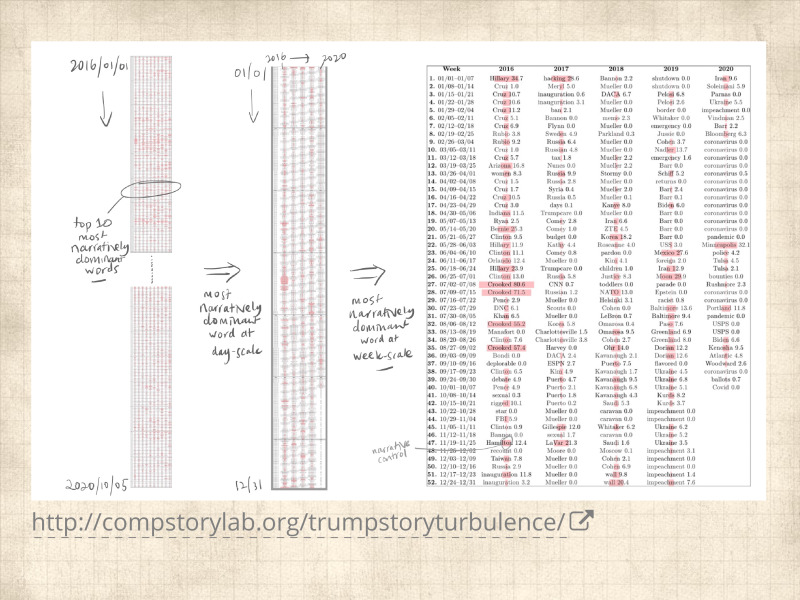 2016/01/01
top 10
most
narratively
dominant
words
2020/10/05
2016 → 2020
01/01
most
narratively
dominant
word at
day-scale
12/31
most
narratively
dominant
word at
week-scale
narrative
control
Week 2016 2017 2018 2019 2020
1. 01/01–01/07 Hillary 34.7 hacking 28.6 Bannon 2.2 shutdown 0.0 Iran 9.6
2. 01/08–01/14 Cruz 1.0 Meryl 5.0 Mueller 0.0 shutdown 0.0 Soleimani 5.9
3. 01/15–01/21 Cruz 10.7 inauguration 0.6 DACA 6.7 Pelosi 6.8 Parnas 0.0
4. 01/22–01/28 Cruz 10.6 inauguration 3.1 Mueller 0.0 Pelosi 2.6 Ukraine 5.5
5. 01/29–02/04 Cruz 11.2 ban 2.1 Mueller 0.0 border 0.0 impeachment 0.0
6. 02/05–02/11 Cruz 5.1 Bannon 0.0 memo 2.3 Whitaker 0.0 Vindman 2.5
7. 02/12–02/18 Cruz 6.9 Flynn 0.0 Mueller 0.0 emergency 0.0 Barr 2.2
8. 02/19–02/25 Rubio 3.8 Sweden 4.9 Parkland 0.3 Jussie 0.0 Bloomberg 6.3
9. 02/26–03/04 Rubio 9.2 Russia 6.4 Mueller 0.0 Cohen 3.7 coronavirus 0.0
10. 03/05–03/11 Cruz 1.0 Russian 4.8 Mueller 0.0 Nadler 13.7 coronavirus 0.0
11. 03/12–03/18 Cruz 5.7 tax 1.8 Mueller 2.2 emergency 1.6 coronavirus 0.0
12. 03/19–03/25 Arizona 16.8 Nunes 0.0 Mueller 2.2 Barr 0.0 coronavirus 0.0
13. 03/26–04/01 women 8.3 Russia 9.9 Stormy 0.0 Schiff 5.2 coronavirus 0.5
14. 04/02–04/08 Cruz 1.5 Russia 2.8 Mueller 0.0 returns 0.0 coronavirus 0.0
15. 04/09–04/15 Cruz 1.7 Syria 0.4 Mueller 0.0 Barr 2.4 coronavirus 0.0
16. 04/16–04/22 Cruz 10.5 Russia 0.5 Mueller 0.1 Barr 0.1 coronavirus 0.0
17. 04/23–04/29 Cruz 3.0 days 0.1 Kanye 8.0 Biden 6.0 coronavirus 0.0
18. 04/30–05/06 Indiana 11.5 Trumpcare 0.0 Mueller 0.0 Barr 0.0 coronavirus 0.0
19. 05/07–05/13 Ryan 2.5 Comey 2.8 Iran 6.6 Barr 0.0 coronavirus 0.0
20. 05/14–05/20 Bernie 25.3 Comey 2.0 ZTE 4.5 Barr 0.0 coronavirus 0.0
21. 05/21–05/27 Clinton 9.5 budget 0.0 Korea 18.2 Barr 0.0 pandemic 0.0
22. 05/28–06/03 Hillary 11.9 Kathy 4.4 Roseanne 4.0 USS 3.0 Minneapolis 32.1
23. 06/04–06/10 Clinton 11.1 Comey 0.8 pardon 0.0 Mexico 27.6 police 4.2
24. 06/11–06/17 Orlando 12.4 Mueller 0.0 Kim 4.1 foreign 2.0 Tulsa 4.5
25. 06/18–06/24 Hillary 23.9 Trumpcare 0.0 children 1.0 Iran 12.9 Tulsa 2.1
26. 06/25–07/01 Clinton 13.0 Russia 5.8 Justice 8.1 Moon 29.0 bounties 0.0
27. 07/02–07/08 Crooked 80.6 CNN 0.7 toddlers 0.0 parade 0.0 Rushmore 2.3
28. 07/09–07/15 Crooked 71.5 Russian 1.2 NATO 13.0 Epstein 0.0 coronavirus 0.0
29. 07/16–07/22 Pence 2.9 Mueller 0.0 Helsinki 3.1 racist 0.8 coronavirus 0.0
30. 07/23–07/29 DNC 6.1 Sconts 0.0 Cohen 0.0 Baltimore 13.6 Portland 11.8
31. 07/30–08/05 Khan 6.5 Mueller 0.0 LeBron 0.7 Baltimore 9.4 pandemic 0.0
32. 08/06–08/12 Crooked 55.2 Korea 5.8 Omarosa 0.4 Paso 7.6 USPS 0.0
33. 08/13–08/19 Manafort 0.0 Charlottesville 1.5 Omarosa 9.5 Greenland 6.9 USPS 0.0
34. 08/20–08/26 Clinton 7.6 Charlottesville 3.8 Cohen 2.7 Greenland 8.0 Biden 6.6
35. 08/27–09/02 Crooked 57.4 Harvey 0.0 Ohr 14.3 Dorian 12.2 Kenosha 9.5
36. 09/03–09/09 Bondi 0.0 DACA 2.4 Kavanaugh 2.1 Dorian 12.6 Atlantic 4.8
37. 09/10–09/16 deplorable 0.0 ESPN 2.7 Puerto 7.5 flavored 0.0 Woodward 2.6
38. 09/17–09/23 Clinton 6.5 Kim 4.9 Kavanaugh 1.7 Ukraine 4.5 coronavirus 0.0
39. 09/24–09/30 debate 4.9 Puerto 4.7 Kavanaugh 9.5 Ukraine 6.8 ballots 0.7
40. 10/01–10/07 Pence 4.9 Puerto 2.1 Kavanaugh 4.3 Ukraine 5.0 Covid 0.0
41. 10/08–10/14 sexual 0.3 Puerto 1.8 Kavanaugh 4.3 Kurds 8.2
42. 10/15–10/21 rigged 10.1 Puerto 0.2 Saudi 5.3 Kurds 3.7
43. 10/22–10/28 star 0.0 Mueller 0.0 caravan 0.0 impeachment 0.0
44. 10/29–11/04 FBI 5.9 Mueller 0.0 caravan 0.0 impeachment 0.0
45. 11/05–11/11 Clinton 0.9 Gillespie 12.0 Whitaker 6.2 Ukraine 6.2
46. 11/12–11/18 Bannon 0.0 sexual 1.7 caravan 0.0 Ukraine 5.2
47. 11/19–11/25 Hamilton 12.4 LaVar 21.3 Saudi 1.6 Ukraine 3.5
48. 11/26–12/02 recount 0.0 Moore 0.0 Moscow 0.1 impeachment 3.1
49. 12/03–12/09 Taiwan 7.8 Mueller 0.0 Cohen 2.1 impeachment 0.0
50. 12/10–12/16 Russia 2.9 Mueller 0.0 Cohen 6.9 impeachment 0.0
51. 12/17–12/23 inauguration 11.8 Mueller 0.0 wall 9.8 impeachment 1.4
52. 12/24–12/31 inauguration 3.2 Mueller 0.0 wall 20.4 impeachment 7.6
http://compstorylab.org/trumpstoryturbulence/